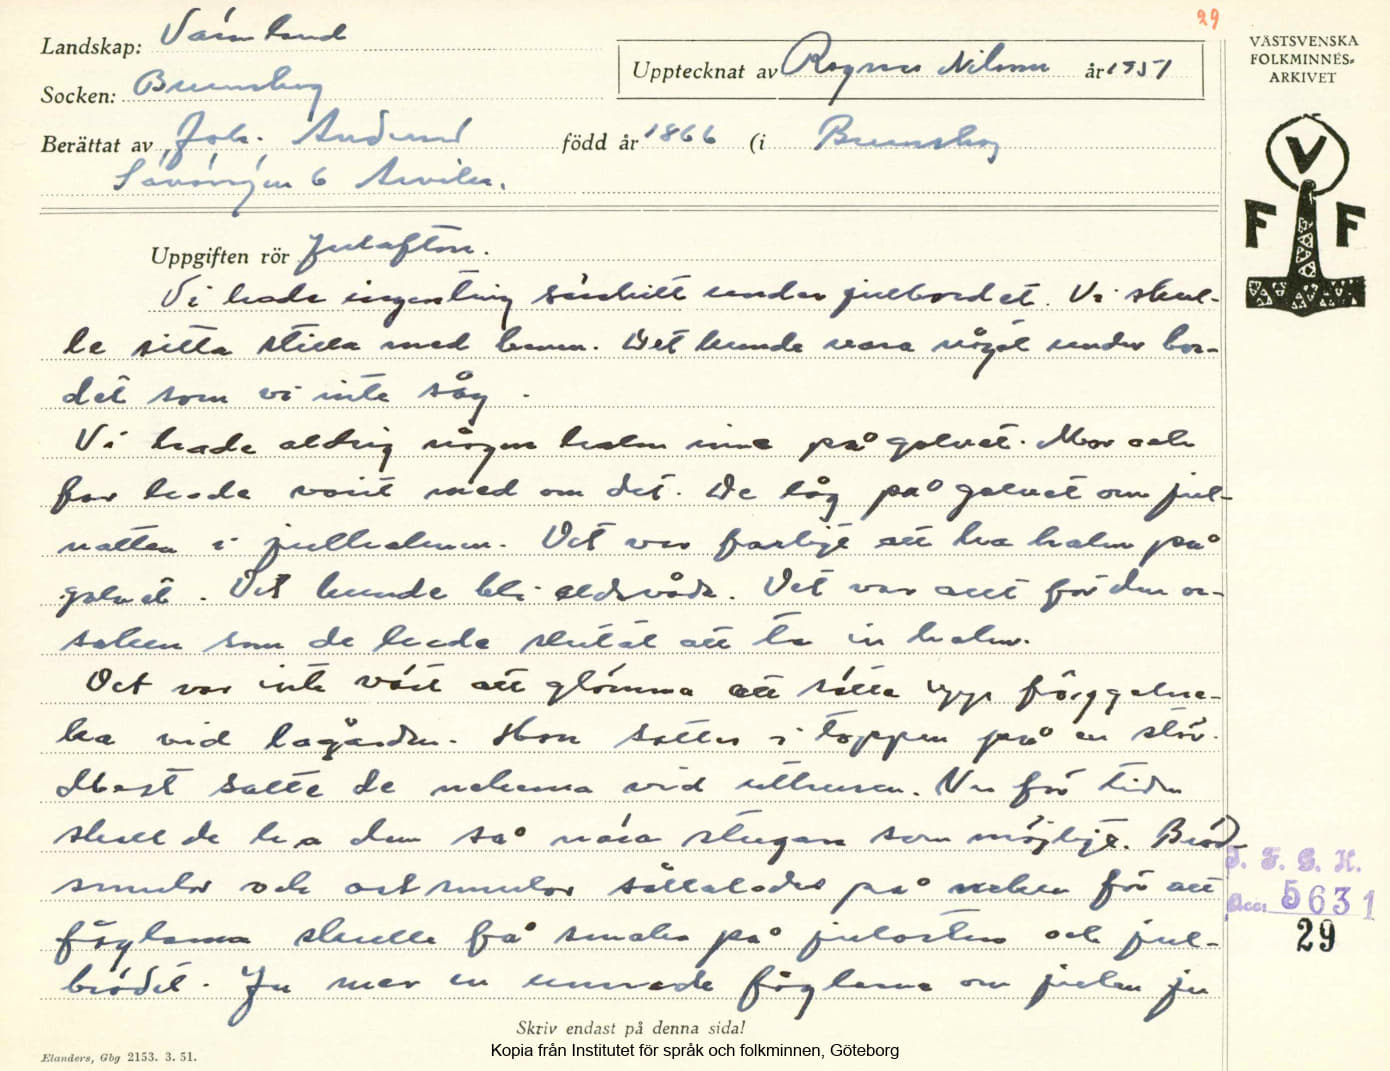 29
Landskap: Värmland
Socken: Brunskog
Upptecknat av Ragnar Nilsson år 1951
Berättat av Joh. född år 1866 (i Brunskog
6 Arvika.
VÄSTSVENSKA
FOLKMINNES-
ARKIVET
V
F F
Uppgiften rör Julafton.
Vi hade ingenting särskilt under julbordet. Vi skul-
le sitta stilla med benen. Det kunde vara något under bor-
det som vi inte såg.
Vi hade aldrig någon halm inne på golvet. Mor och
far hade varit med om det. De låg på golvet om jul-
natten i julhalmen. Det var farligt att ha halm på
golvet. Det kunde bli eldsvåda. Det var allt för den or-
saken som de hade slutat att ta in halm.
Det var inte värt att glömma att sätta upp fågelne-
ka vid lagården. Hon sattes i toppen på en stör.
Mest satte de nekerna vid uthusen. Nu för tiden
skall de ha dem så nära stugan som möjligt. Bröd-
smulor och ostsmulor sållades på neken för att
fåglarna skulle få smaka på julosten och jul-
brödet. Ju mer en unnade fåglarna om julen ju
I. F. G. H.
Acc: 5631
29
Skriv endast på denna sida!
Elanders, Gbg 2153. 3. 51.
Kopia från Institutet för språk och folkminnen, Göteborg